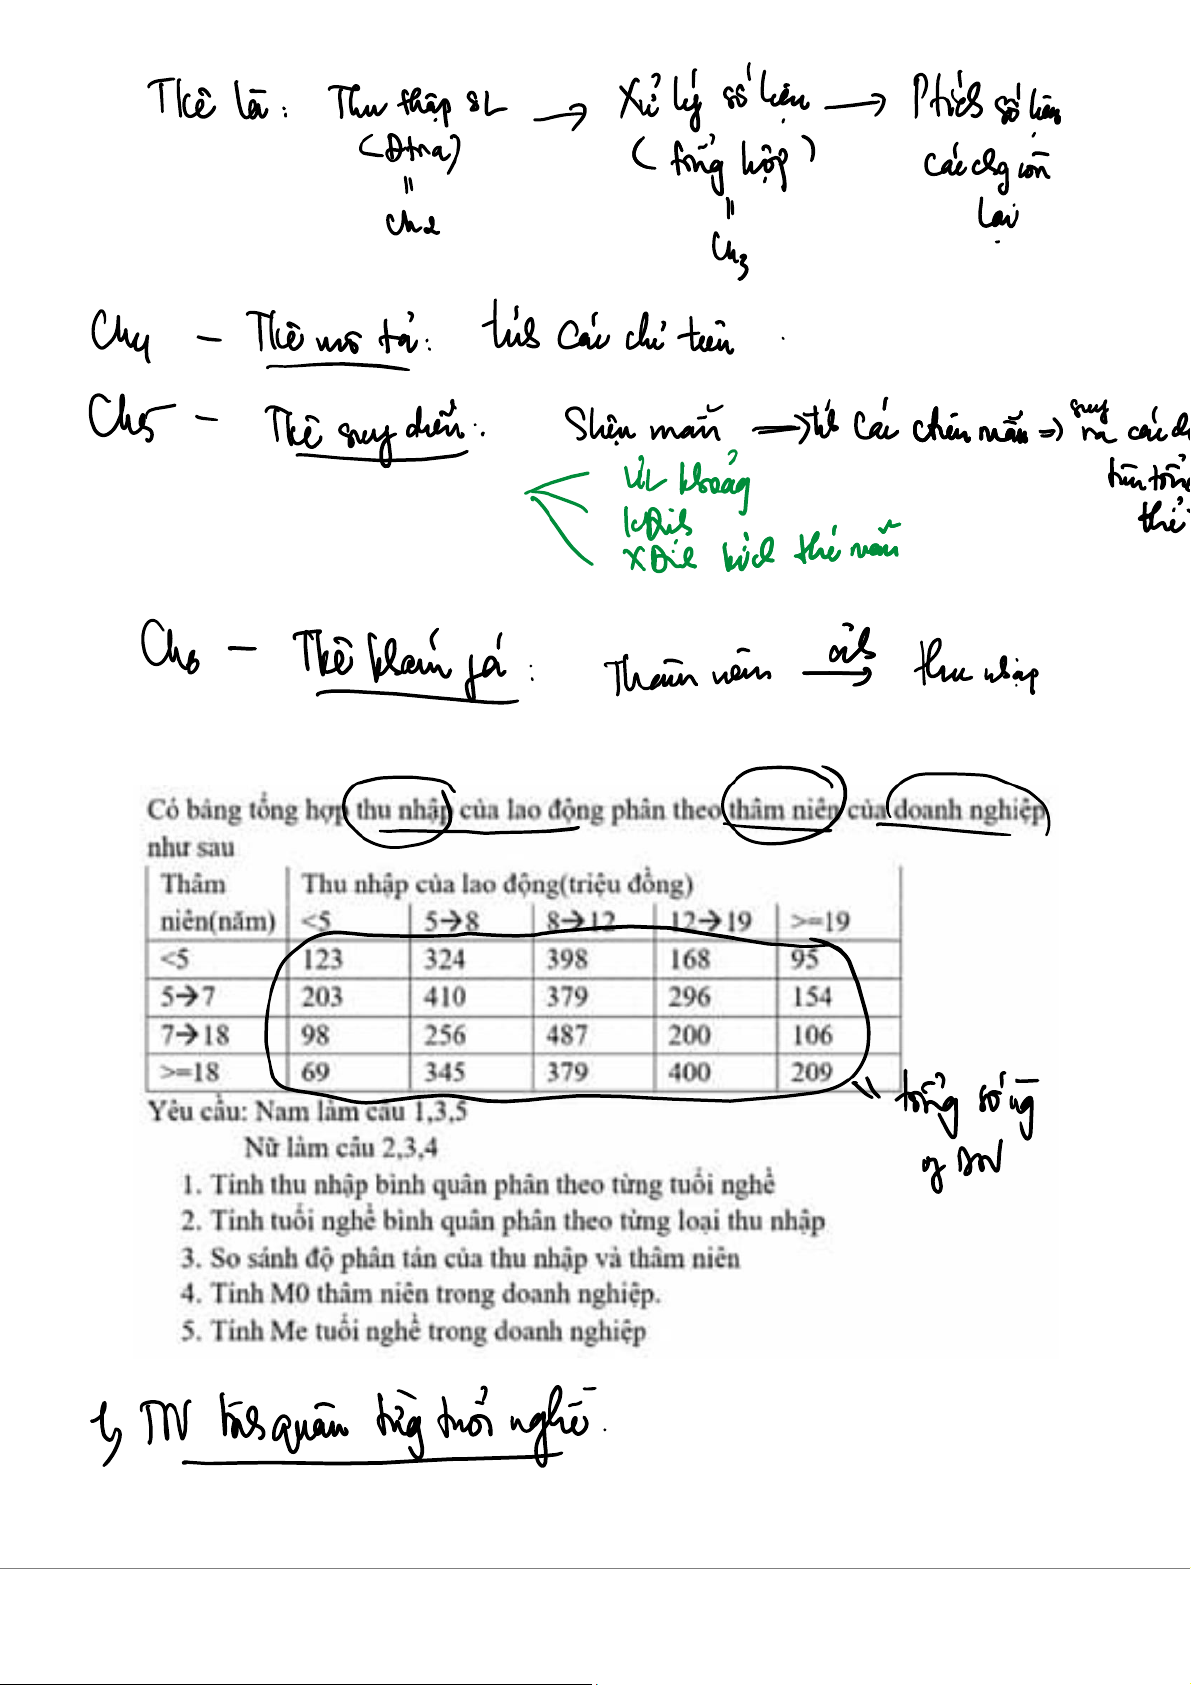 Tkê là : Thu thập SL → Xử lý số liệu → Ptích số liệu
(Đtra) ( tổng hợp ) các chg còn
= = lại
Ch2 Ch3
Ch4 - Tkê mô tả : các chỉ tiêu
Ch5 - Tkê suy diễn : mẫu → các mẫu => suy ra các
ƯL khoảng
thể
KĐịnh
XĐịnh kích thước mẫu
- Tkê : Thâm niên → thu nhập
Có bảng tổng hợp thu nhập của lao động phân theo thâm niên của doanh nghiệp
như sau
Thâm Thu nhập của lao động(triệu đồng)
niên(năm) <5 5→8 8→12 12→19 >=19
<5 123 324 398 168 95
5→7 203 410 379 296 154
7→18 98 256 487 200 106
>=18 69 345 379 400 209
Yêu cầu: Nam làm câu 1,3,5
tổng số ng
Nữ làm câu 2,3,4
DN
1. Tính thu nhập bình quân phân theo từng tuổi nghề
2. Tính tuổi nghề bình quân phân theo từng loại thu nhập
3. So sánh độ phân tán của thu nhập và thâm niên
4. Tính M0 thâm niên trong doanh nghiệp.
5. Tính Me tuổi nghề trong doanh nghiệp
1, TN bình quân từng tuổi nghề.